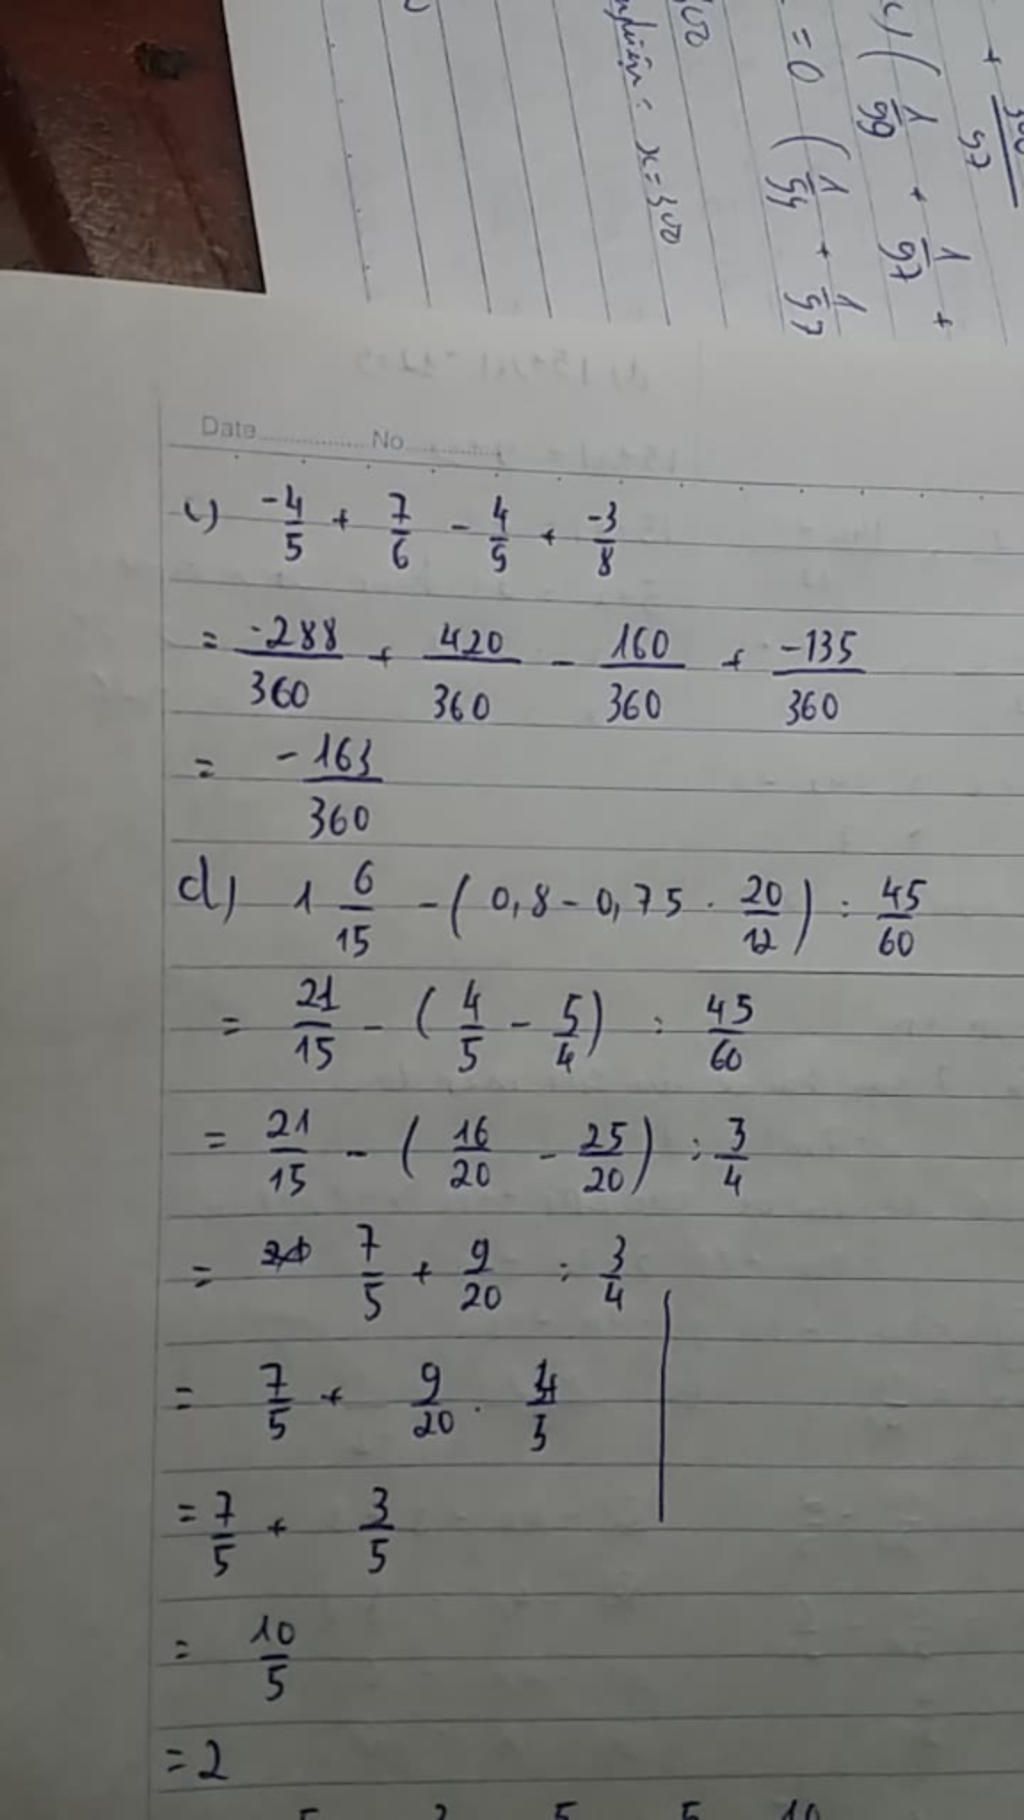 + 300/97
c) ( 1/99 + 1/97 +
= 0 ( 1/99 + 1/97
x = 300
Date No
c) -4/5 + 7/6 - 4/9 + -3/8
= -288/360 + 420/360 - 160/360 + -135/360
= -163/360
d) 1 6/15 - ( 0,8 - 0,75 . 20/12 ) : 45/60
= 21/15 - ( 4/5 - 5/4 ) : 45/60
= 21/15 - ( 16/20 - 25/20 ) : 3/4
= 7/5 + 9/20 : 3/4
= 7/5 + 9/20 . 4/3
= 7/5 + 3/5
= 10/5
= 2